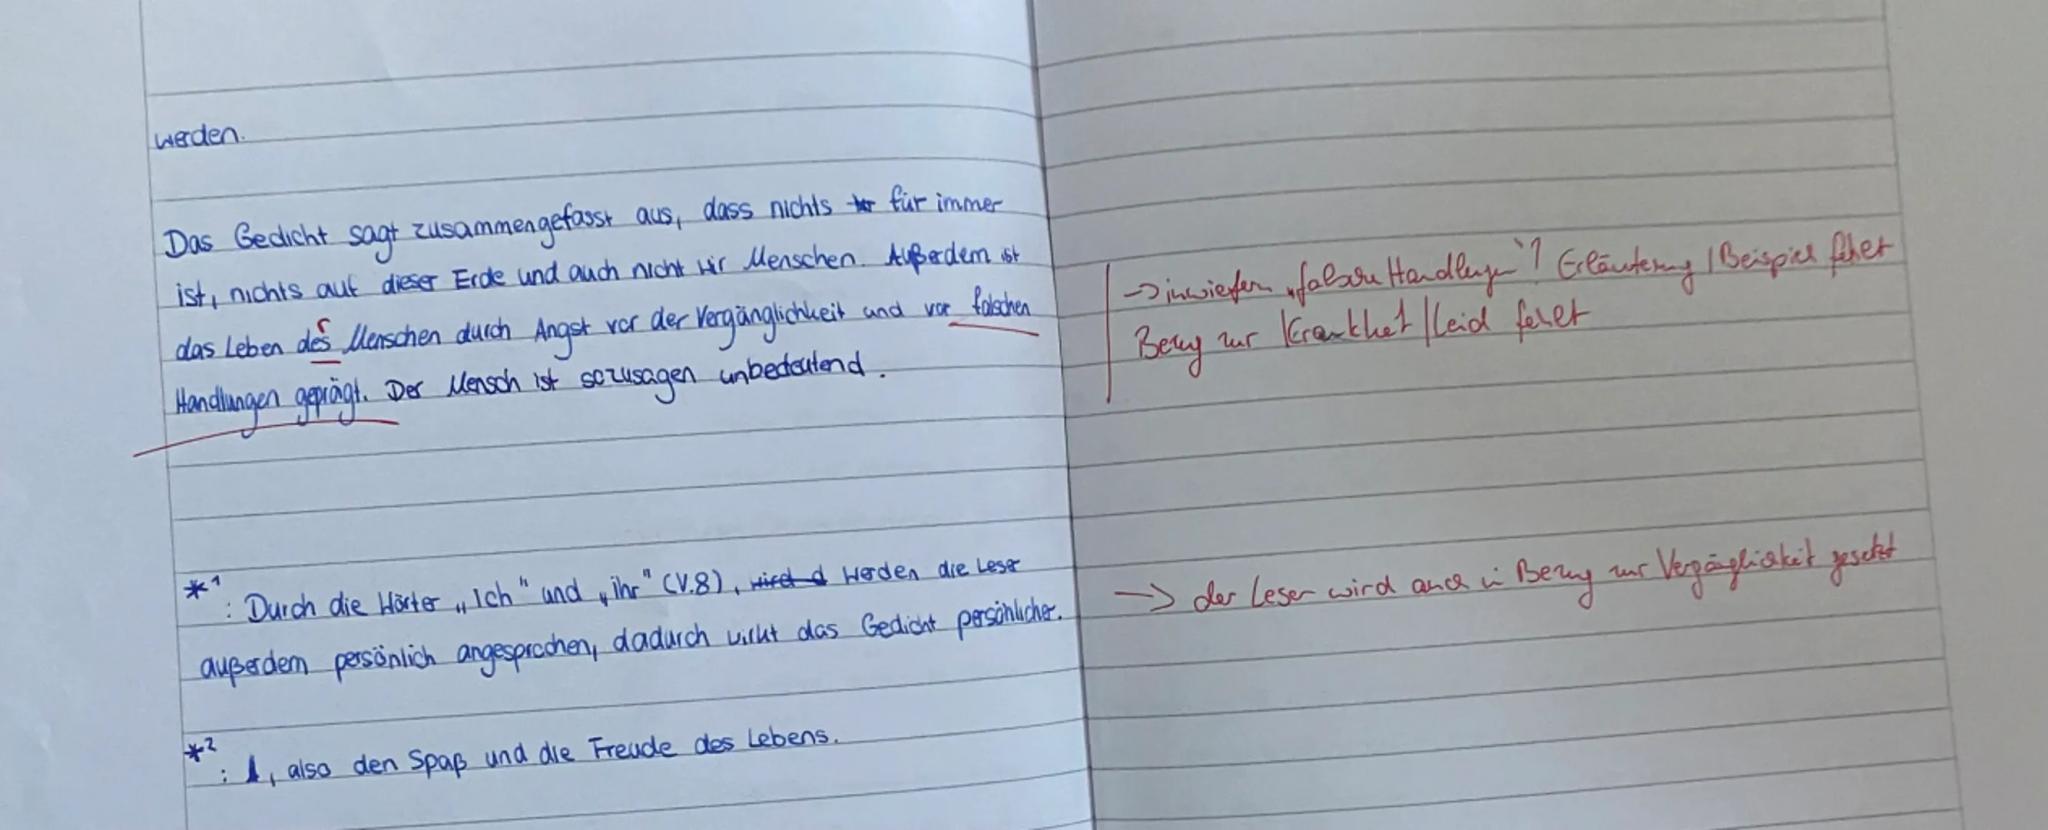 werden.
Das Gedicht sagt zusammengefasst aus, dass nichts für immer
ist, nichts auf dieser Erde und auch nicht wir Menschen. Außerdem ist
das Leben des Menschen durch Angst vor der Vergänglichkeit und vor falschen
r
Handlungen geprägt. Der Mensch ist sozusagen unbedeutend.
→ inwiefern „falsche Handlungen“? Erläuterung / Beispiel fehlt
Bezug zur Krankheit / Leid fehlt
*1
: Durch die Wörter „Ich“ und „ihr“ (V.8), wird d werden die Leser
außerdem persönlich angesprochen, dadurch wirkt das Gedicht persönlicher.
→ der Leser wird auch in Bezug zur Vergänglichkeit gesetzt
*2
: , also den Spaß und die Freude des Lebens.